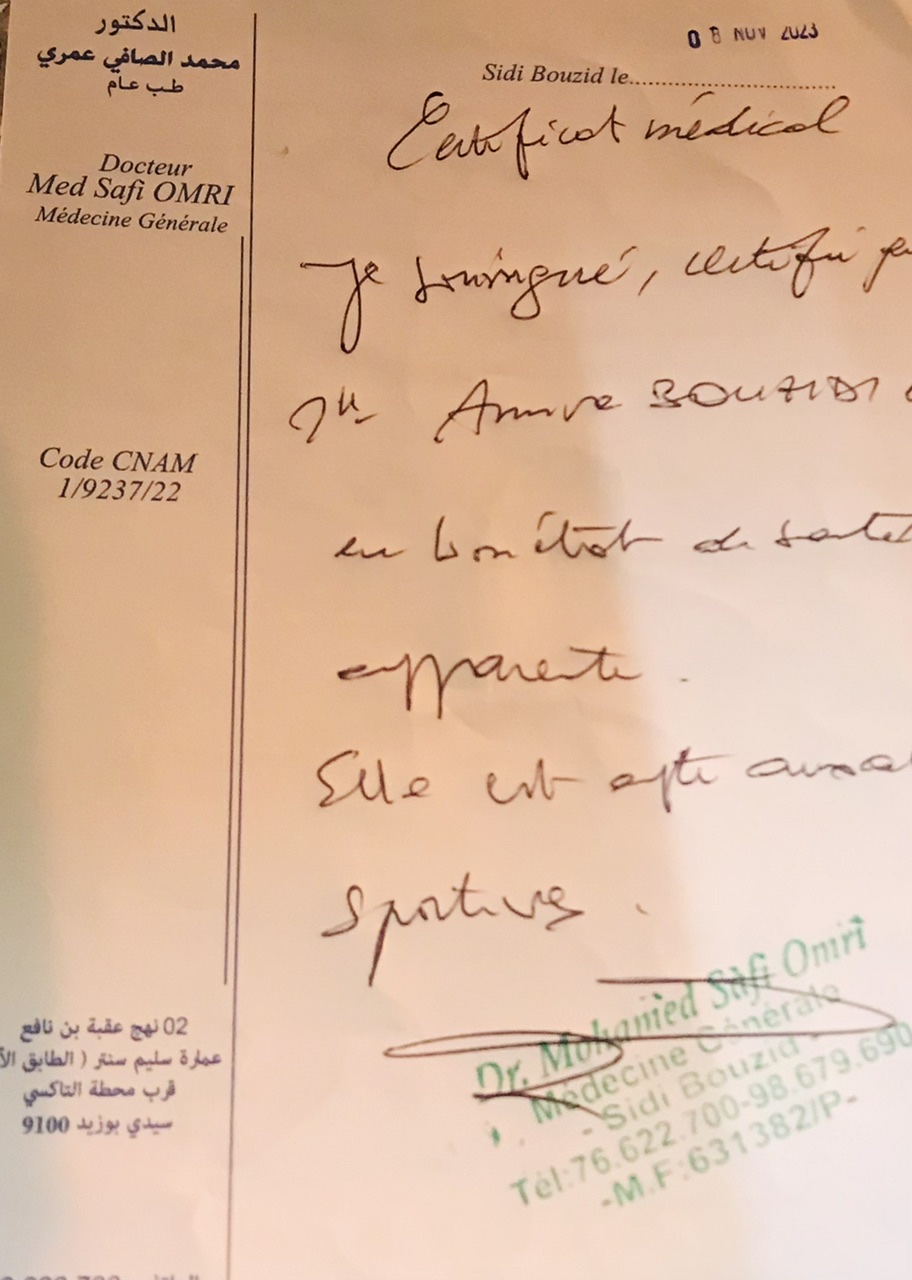 الدكتور
محمد الصافي عمري
طب عام
Docteur
Med Safi OMRI
Médecine Générale
Code CNAM
1/9237/22
02 نهج عقبة بن نافع
عمارة سليم سنتر ( الطابق
قرب محطة التاكسي
سيدي بوزيد 9100
08 NOV 2023
Sidi Bouzid le
Certificat médical
Je soussigné, certifie
BOUZIDI
en bon état de santé
apparente.
Elle est apte
sportives.
Dr. Mohamed Safi Omri
Médecine Générale
- Sidi Bouzid -
Tél:76.622.700-98.679.690
-M.F:631382/P-